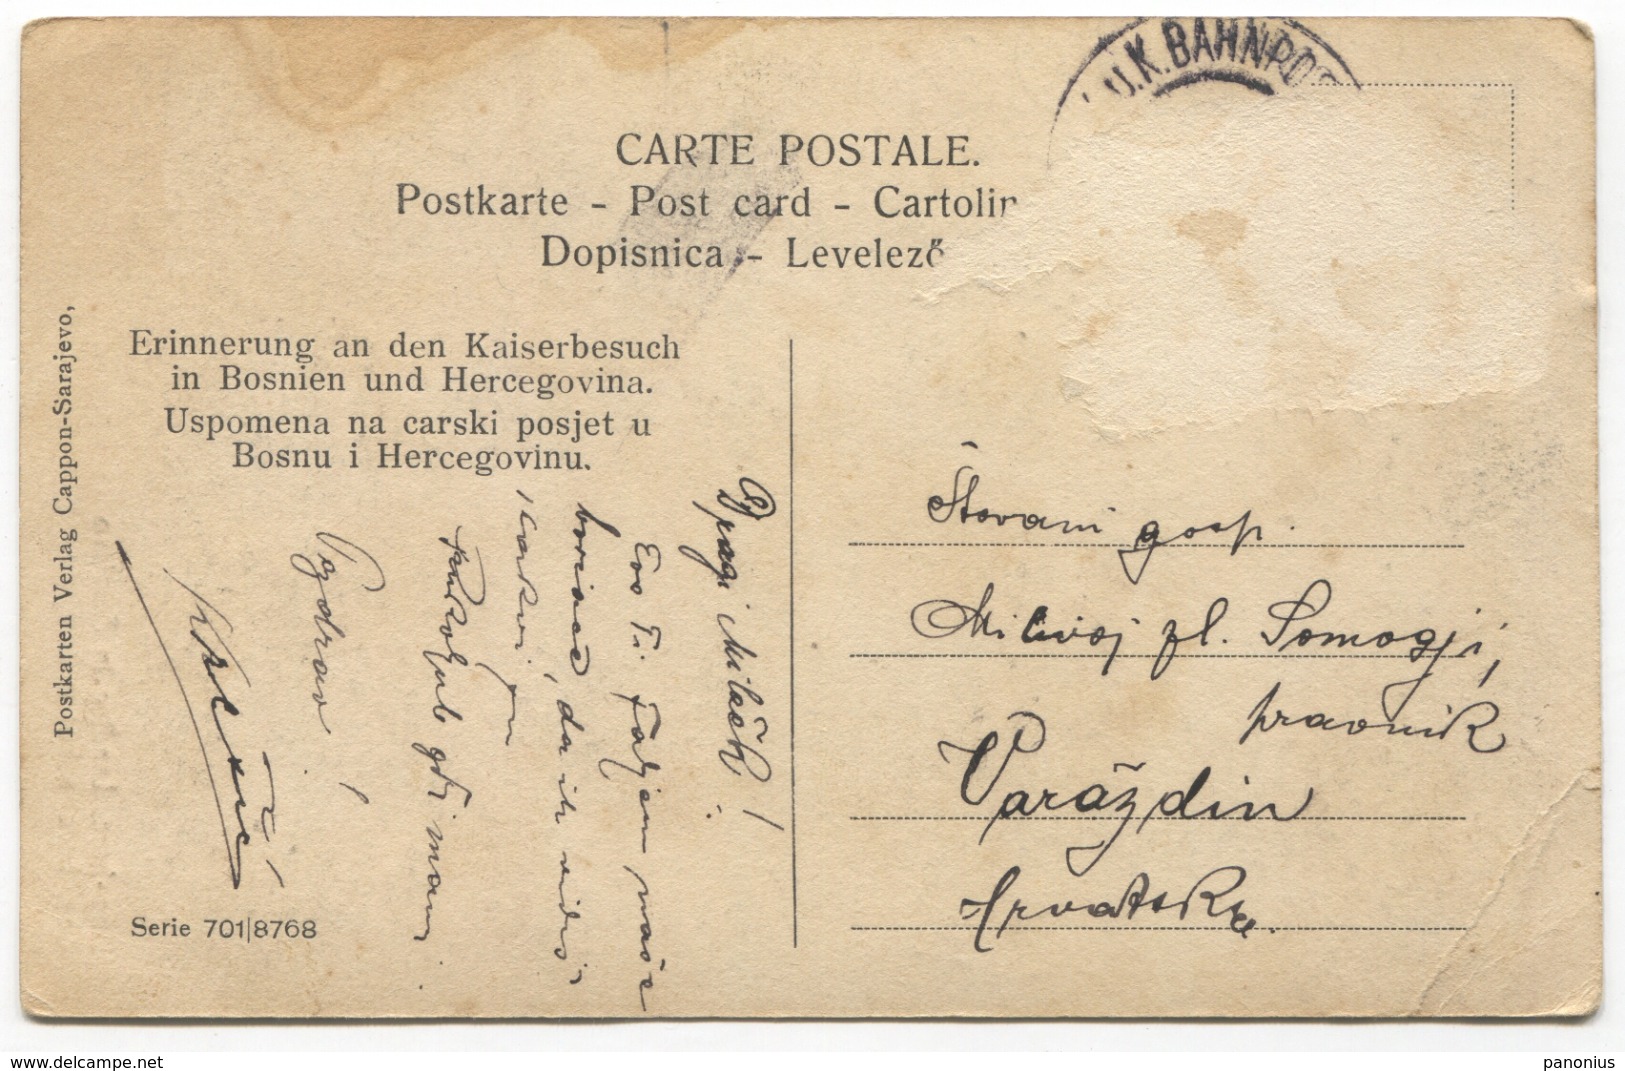 K.u.K. BAHNPOS
CARTE POSTALE.
Postkarte - Post card - Cartolin
Dopisnica - Levelező
Postkarten Verlag Cappon-Sarajevo,
Erinnerung an den Kaiserbesuch
in Bosnien und Hercegovina.
Uspomena na carski posjet u
Bosnu i Hercegovinu.
Dragi Milaček!
Evo Ti šaljem naše
, da ih vidiš
Pozdrav!
Serie 701|8768
Štovani gosp.
Milivoj pl. Šomogji,
pravnik
Varaždin
Hrvatska.
panonius
www.delcampe.net